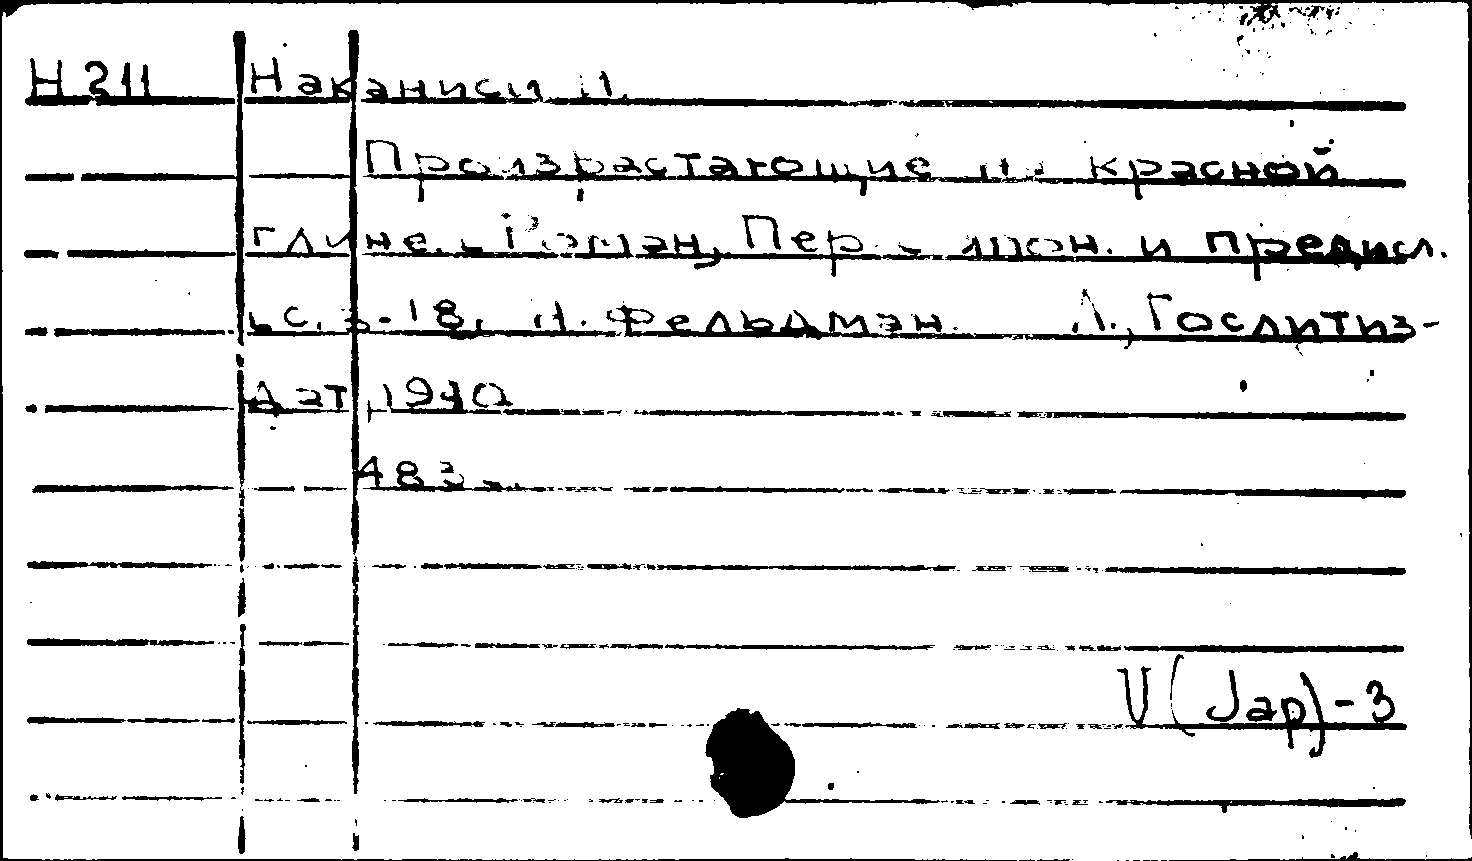 Н 211 Наканиси И.
Произрастающие на красной
глине. - Роман, Пер. с япон. и предисл.
[с. 3-18, Н. Фельдман. Л., Гослитиз-
дат, 1940
483 с.
V (Jap)-3